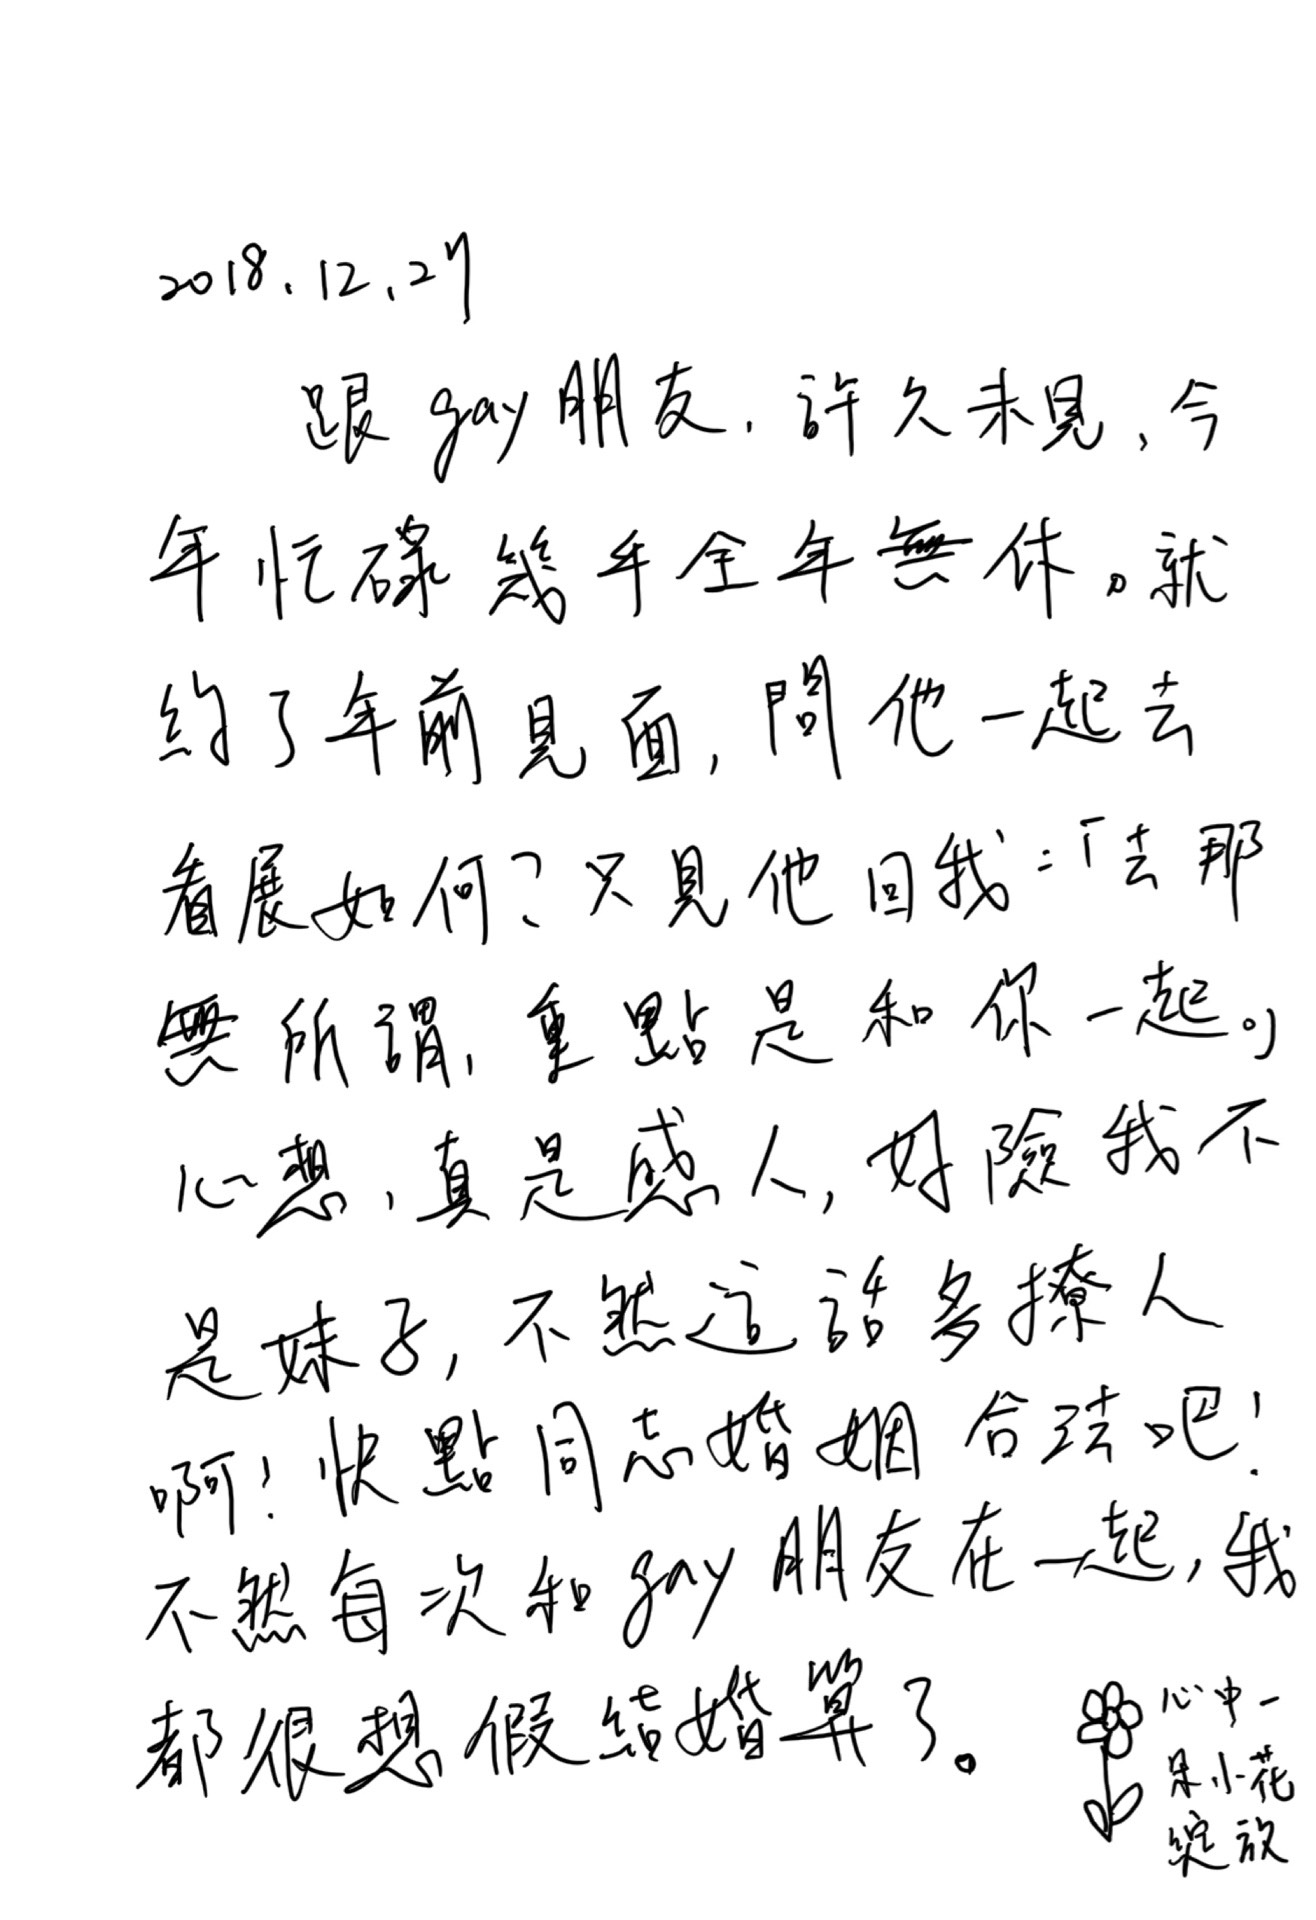 2018.12.27
跟gay朋友,許久未見,今
年忙碌幾乎全年無休。就
約了年前見面,問他一起去
看展如何?只見他回我:「去那
無所謂,重點是和你一起。」
心想,真是感人,好險我不
是妹子,不然這話多撩人
啊!快點同志婚姻合法吧!
不然每次和gay朋友在一起,我
都很想假結婚算了。
心中一
朵小花
綻放